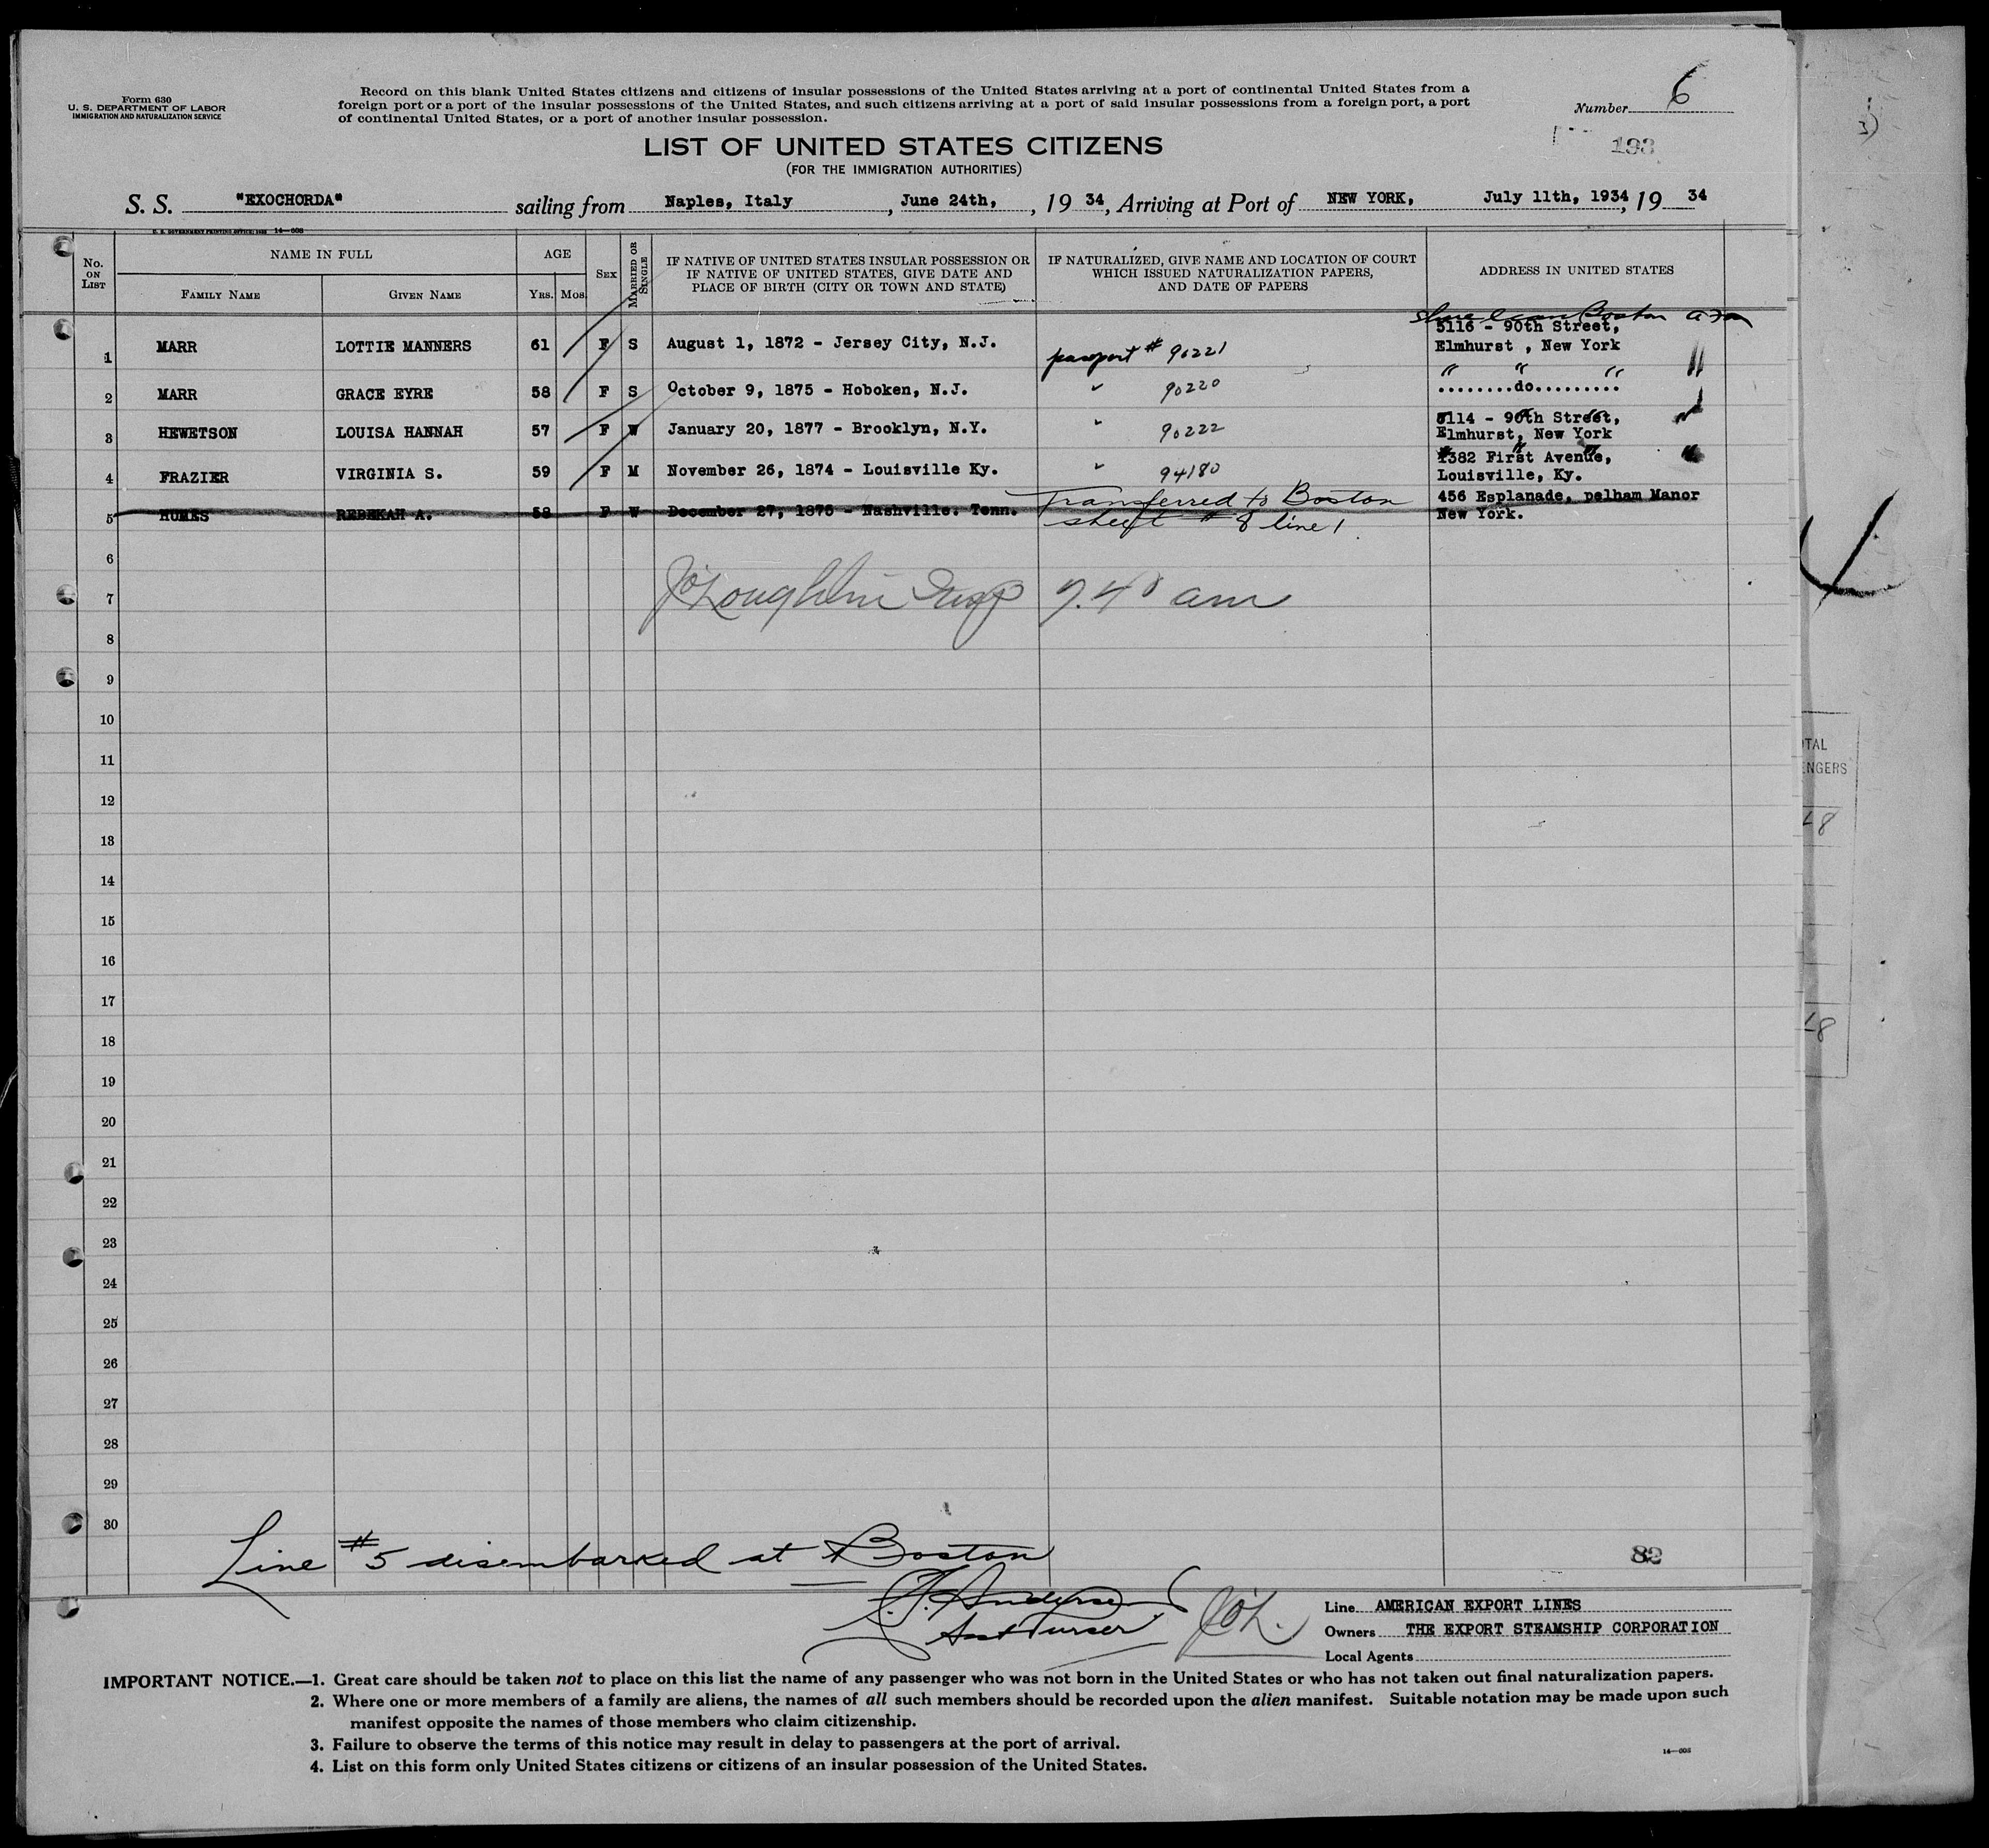 Form 630
U. S. DEPARTMENT OF LABOR
IMMIGRATION AND NATURALIZATION SERVICE
Record on this blank United States citizens and citizens of insular possessions of the United States arriving at a port of continental United States from a
foreign port or a port of the insular possessions of the United States, and such citizens arriving at a port of said insular possessions from a foreign port, a port
of continental United States, or a port of another insular possession.
Number 6
193
LIST OF UNITED STATES CITIZENS
(FOR THE IMMIGRATION AUTHORITIES)
S. S. "EXOCHORDA" sailing from Naples, Italy, June 24th, , 19 34, Arriving at Port of NEW YORK, July 11th, 1934, 19 34
U. S. GOVERNMENT PRINTING OFFICE: 1932 14—608
No. ON LIST
NAME IN FULL
FAMILY NAME GIVEN NAME
AGE
YRS. MOS.
SEX
MARRIED OR SINGLE
IF NATIVE OF UNITED STATES INSULAR POSSESSION OR
IF NATIVE OF UNITED STATES, GIVE DATE AND
PLACE OF BIRTH (CITY OR TOWN AND STATE)
IF NATURALIZED, GIVE NAME AND LOCATION OF COURT
WHICH ISSUED NATURALIZATION PAPERS,
AND DATE OF PAPERS
ADDRESS IN UNITED STATES
Boston
1 MARR LOTTIE MANNERS 61 F S August 1, 1872 - Jersey City, N.J. passport # 90221 5116 - 90th Street,
Elmhurst , New York
2 MARR GRACE EYRE 58 F S October 9, 1875 - Hoboken, N.J. " 90220 ........do.........
3 HEWETSON LOUISA HANNAH 57 F W January 20, 1877 - Brooklyn, N.Y. " 90222 5114 - 90th Street,
Elmhurst, New York
4 FRAZIER VIRGINIA S. 59 F M November 26, 1874 - Louisville Ky. " 94180 1382 First Avenue,
Louisville, Ky.
5 HUMES REBEKAH A. 58 F W December 27, 1875 - Nashville. Tenn. Transferred to Boston 456 Esplanade, pelham Manor
sheet # 8 line 1. New York.
6
7 J O'Loughlin Insp 7.40 am
8
9
10
11
12
13
14
15
16
17
18
19
20
21
22
23
24
25
26
27
28
29
30
Line #5 disembarked at Boston
82
Andersen
Asst Purser
JO'L.
Line AMERICAN EXPORT LINES
Owners THE EXPORT STEAMSHIP CORPORATION
Local Agents
IMPORTANT NOTICE.—1. Great care should be taken not to place on this list the name of any passenger who was not born in the United States or who has not taken out final naturalization papers.
2. Where one or more members of a family are aliens, the names of all such members should be recorded upon the alien manifest. Suitable notation may be made upon such
manifest opposite the names of those members who claim citizenship.
3. Failure to observe the terms of this notice may result in delay to passengers at the port of arrival.
4. List on this form only United States citizens or citizens of an insular possession of the United States.
14—608